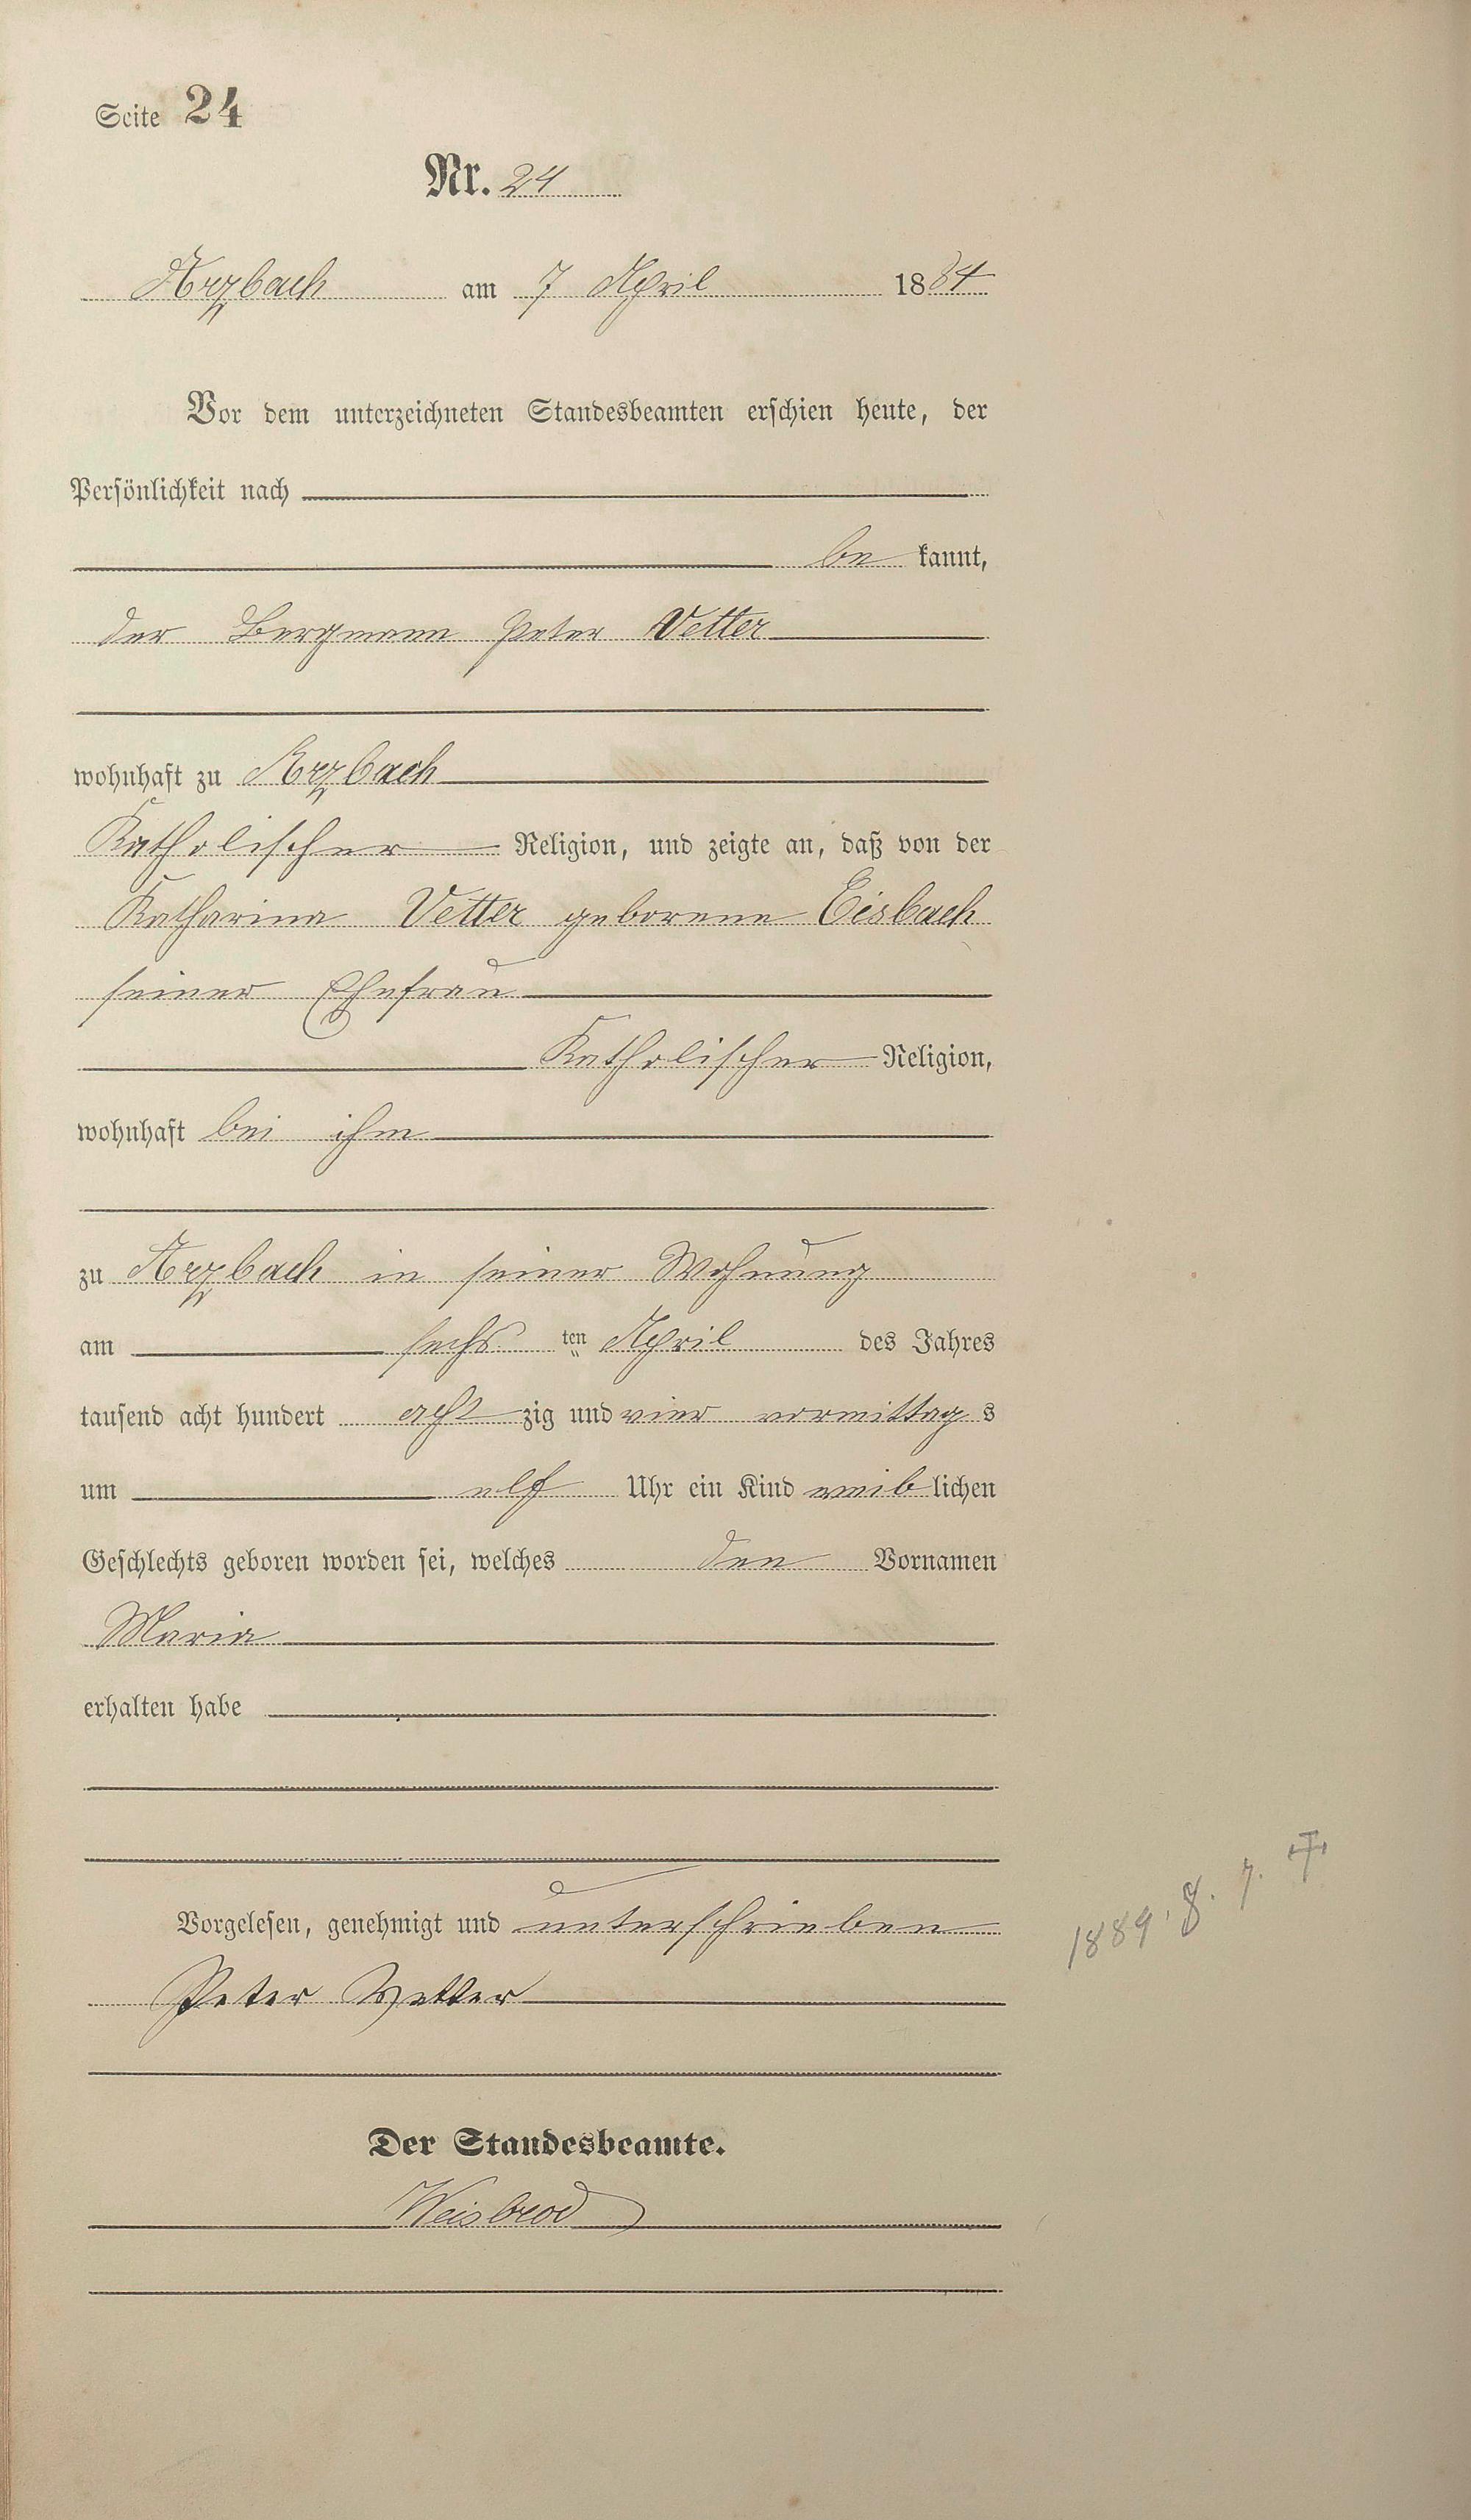 Seite 24
Nr. 24
Arzbach am 7 April 1884
Vor dem unterzeichneten Standesbeamten erschien heute, der
Persönlichkeit nach
be kannt,
der Bergmann Peter Vetter
wohnhaft zu Arzbach
Katholischer Religion, und zeigte an, daß von der
Katharina Vetter geborene Eisbach
seiner Ehefrau
Katholischer Religion,
wohnhaft bei ihm
zu Arzbach in seiner Wohnung
am sechs ten April des Jahres
tausend acht hundert acht zig und vier vormittag s
um elf Uhr ein Kind weib lichen
Geschlechts geboren worden sei, welches den Vornamen
Maria
erhalten habe
Vorgelesen, genehmigt und unterschrieben
1889. 8. 7. †
Peter Vetter
Der Standesbeamte.
Weisbrod